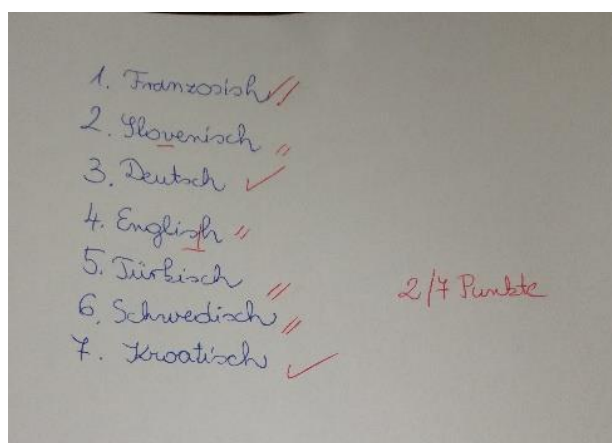 1. Französish
2. Slovenisch
3. Deutsch
4. English
5. Türkisch
6. Schwedisch
7. Kroatisch
2/7 Punkte